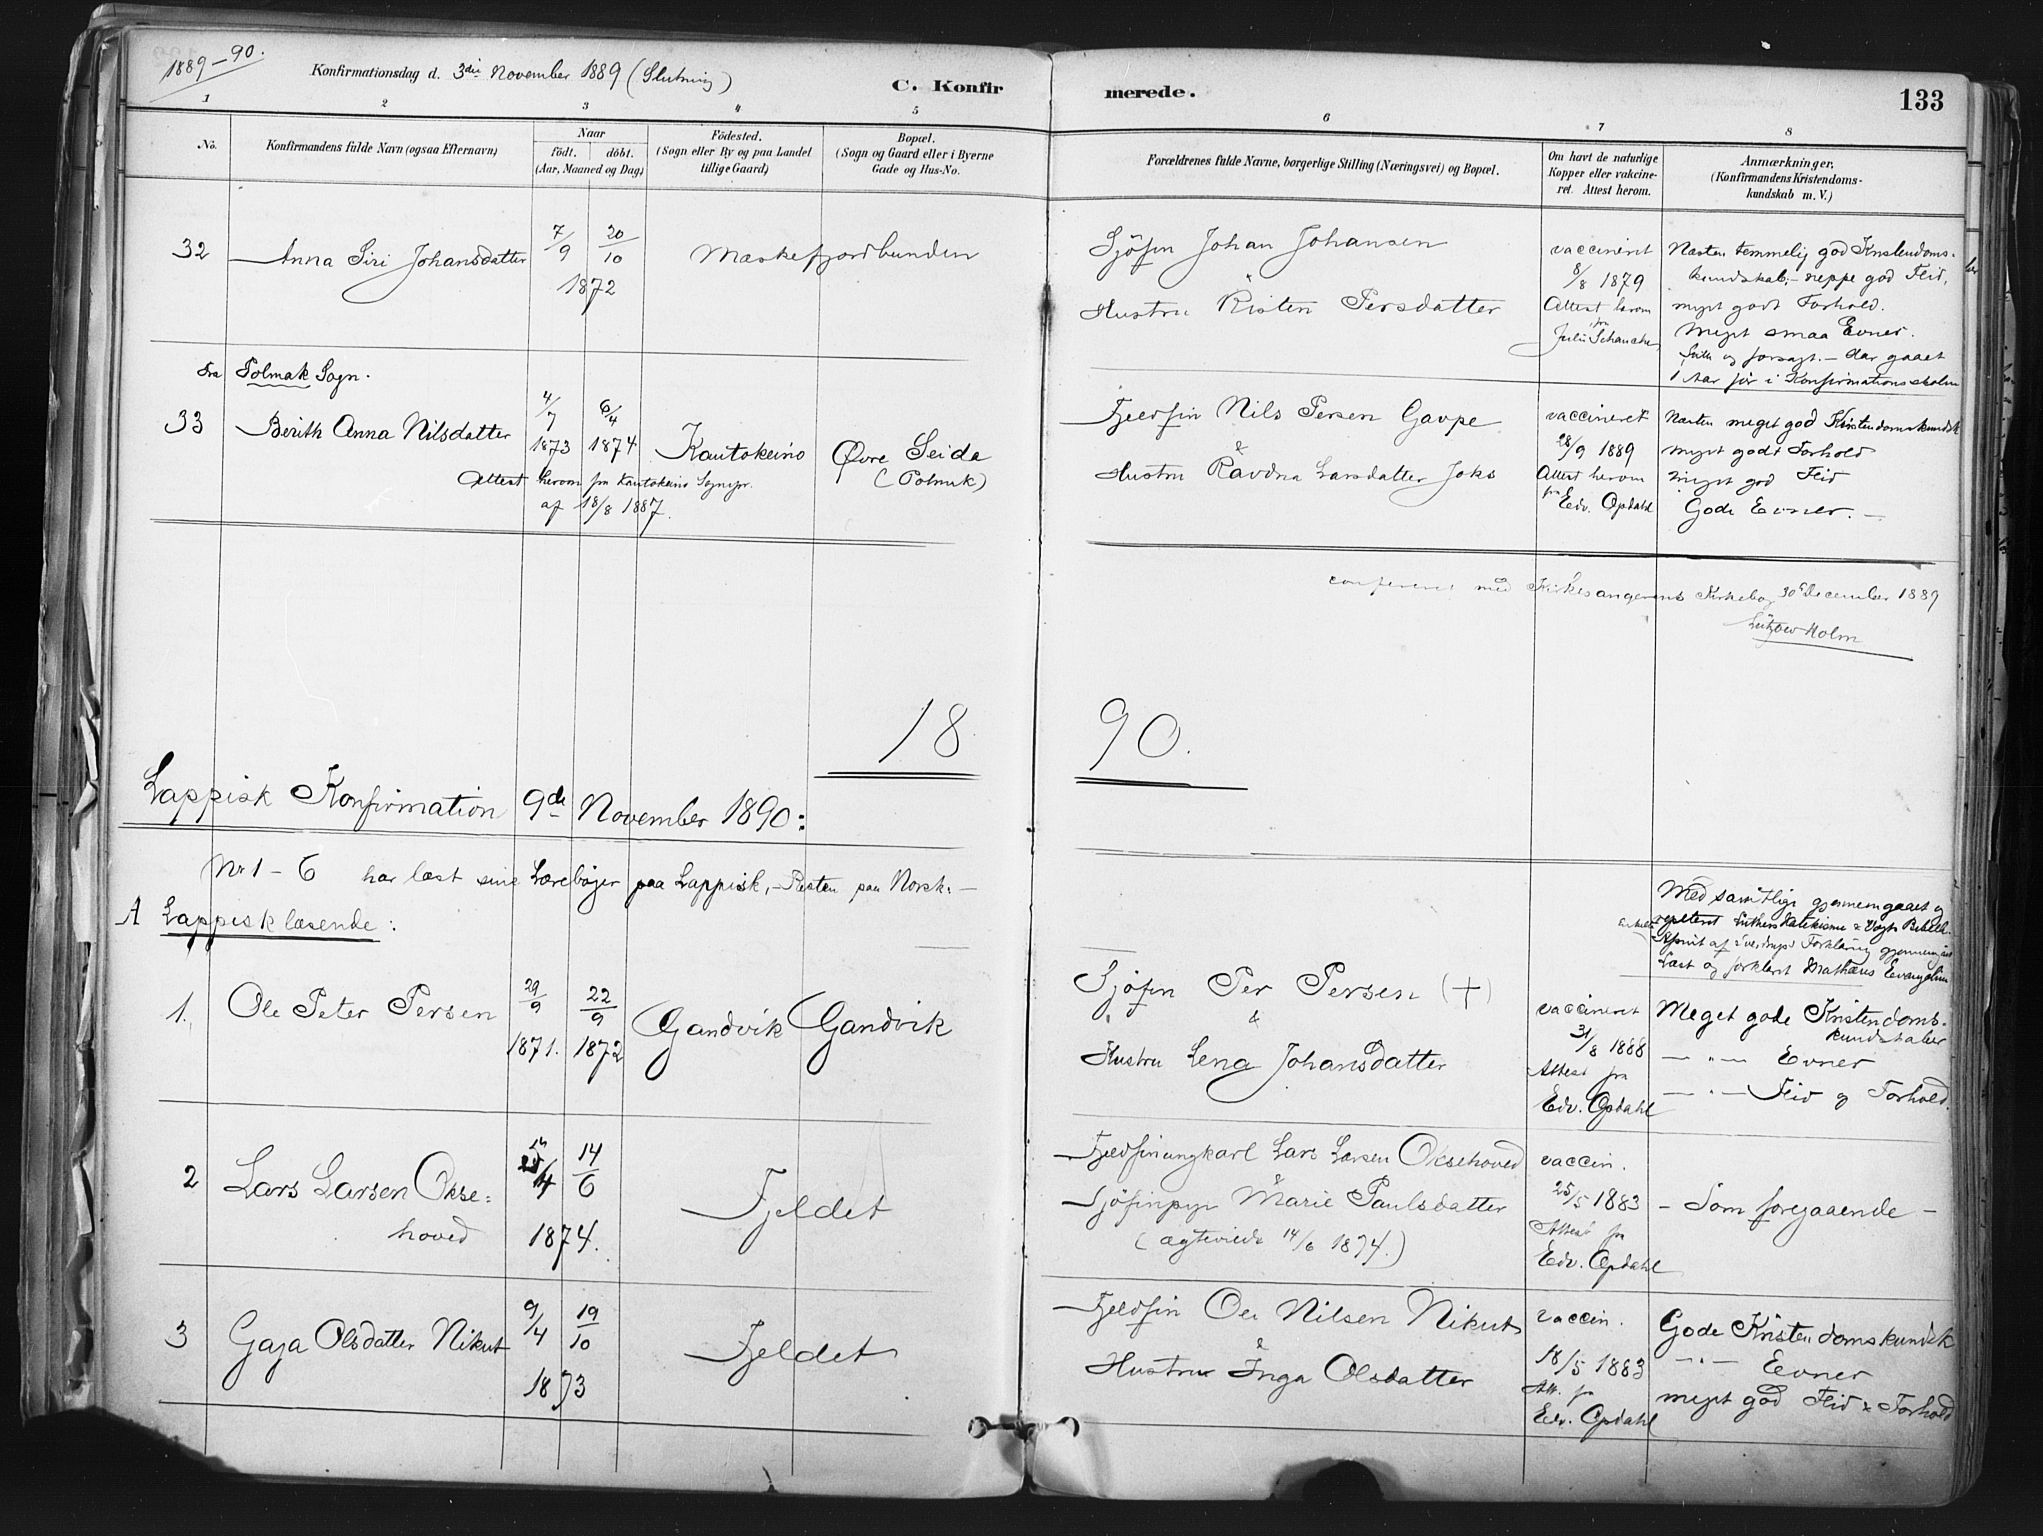 1889-90.
Konfirmationsdag d. 3die November 1889 (Slutning)
C. Konfirmerede.
133
1 2 3 4 5 6 7 8
No.
Konfirmandens fulde Navn (ogsaa Efternavn)
Naar
födt. döbt.
(Aar, Maaned og Dag)
Födested.
(Sogn eller By og paa Landet
tillige Gaard)
Bopæl.
(Sogn og Gaard eller i Byerne
Gade og Hus-No.
Forældrenes fulde Navne, borgerlige Stilling (Næringsvei) og Bopæl.
Om havt de naturlige
Kopper eller vakcine-
ret. Attest herom.
Anmærkninger.
(Konfirmandens Kristendoms-
kundskab m. V.)
32
Anna Siri Johansdatter
7/9 20/10
1872
Mæskefjordbunden
Sjöfin Johan Johansen
&
Hustru Risten Persdatter
vaccineret
8/8 1879
Attest herom
fra
Julii Schanche
Næsten temmelig god Kristendoms-
kundskab; – neppe god Flid,
meget godt Forhold.
Meget smaa Evner.
og forsagt. – Har gaaet
1 Aar før i Konfirmationsskolen
Fra Polmak Sogn.
33
Berith Anna Nilsdatter
4/7 6/4
1873 1874
Kautokeino
Øvre Seida
(Polmak)
Attest herom fra Kautokeino Sognepr.
af 18/8 1887.
Fjeldfin Nils Persen Gavpe
&
Hustru Ravdna Larsdatter Joks
vaccineret
28/9 1889
Attest herom
fra
Edv. Opdahl
Næsten meget god Kristendomskundsk
meget godt Forhold
meget god Flid
Gode Evner. –
confereret med Kirkesangerens Kirkebog 30te December 1889
Lützow Holm
18 90.
Lappisk Konfirmation 9de November 1890:
Nr 1 – 6 har læst sine Lærebøger paa Lappisk, – Resten paa Norsk. –
A Lappisk læsende:
Med samtlige gjennemgaaet og
repeteret Luthers Katekisme & Vogts Bibelh.
af Sverdrups Forklaring
Læst og forklaret Mathæus Evangelium
1.
Ole Peter Persen
29/9 22/9
1871. 1872
Gandvik Gandvik
Sjöfin Per Persen (+)
&
Hustru Lena Johansdatter
vaccineret
31/8 1888
Attest fra
Edv. Opdahl
Meget gode Kristendoms-
kundskaber
— " — Evner
— " — Flid og Forhold.
2
Lars Larsen Okse-
hoved
14/6
1874.
Fjeldet
Fjeldfinungkarl Lars Larsen Oksehoved
&
Sjöfinpige Marie Paulsdatter
(ægteviede 14/6 1874.)
vaccin.
25/5 1883
Attest fra
Edv. Opdahl
– Som foregaaende –
3
Gaja Olsdatter Nikut
9/4 19/10
1873
Fjeldet
Fjeldfin Ole Nilsen Nikut
&
Hustru Inga Olsdatter
vaccin.
18/5 1883
Att. fra
Edv. Opdahl
Gode Kristendomskundsk
— " — Evner
meget god Flid & Forhold